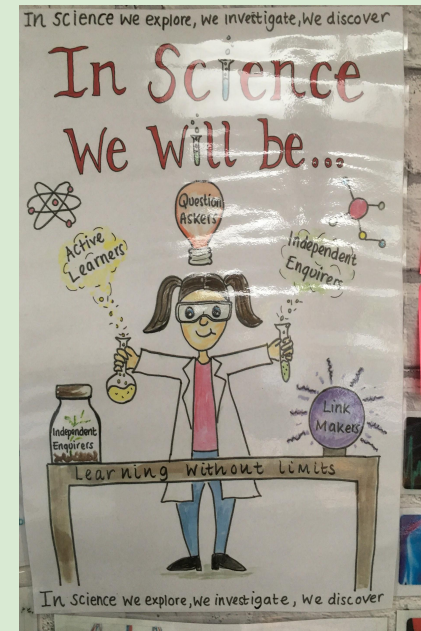 In Science we explore, we investigate, We discover
In Science
We Will be...
Question
Askers
Active
Learners
Independent
Enquirers
Independent
Enquirers
Link
Makers
Learning Without limits
In Science we explore, we investigate, we discover